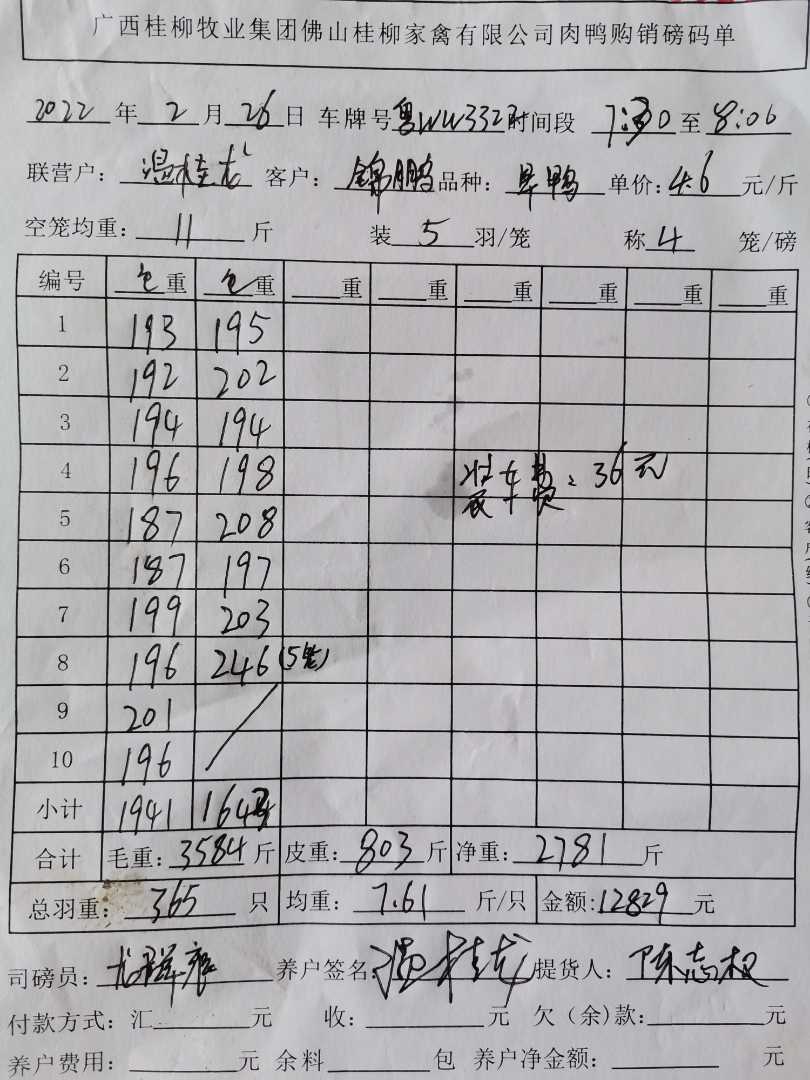 广西桂柳牧业集团佛山桂柳家禽有限公司肉鸭购销磅码单
2022 年 2 月 26 日 车牌号 粤WW3323 时间段 7:30 至 8:06
联营户: 温桂龙 客户: 锦鹏 品种: 旱鸭 单价: 4.6 元/斤
空笼均重: 11 斤 装 5 羽/笼 称 4 笼/磅
编号 毛重 毛重 重 重 重 重 重 重
1 193 195
2 192 202
3 194 194
4 196 198 装车费: 36元
5 187 208
6 187 197
7 199 203
8 196 246 (5笼)
9 201
10 196
小计 1941 1643
合计 毛重: 3584 斤 皮重: 803 斤 净重: 2781 斤
总羽重: 365 只 均重: 7.61 斤/只 金额: 12829 元
司磅员: 养户签名: 温桂龙 提货人: 陈志权
付款方式: 汇 元 收: 元 欠(余)款: 元
养户费用: 元 余料 包 养户净金额: 元